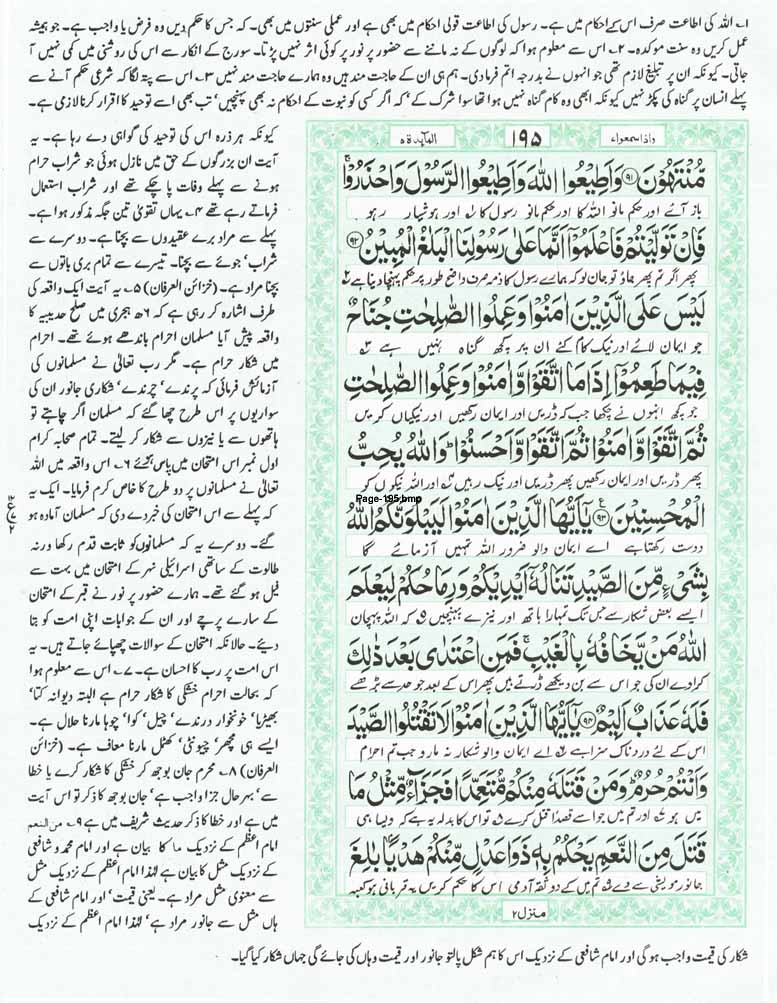 ۱۔ اللہ کی اطاعت صرف اس کے احکام میں ہے۔ رسول کی اطاعت قولی احکام میں بھی ہے اور عملی سنتوں میں بھی۔ کہ جس کا حکم دیں وہ فرض یا واجب ہے۔ جو ہمیشہ
عمل کریں وہ سنت موکدہ۔ ۲۔ اس سے معلوم ہوا کہ لوگوں کے نہ ماننے سے حضور پر نور پر کوئی اثر نہیں پڑتا۔ سورج کے انکار سے اس کی روشنی میں کمی نہیں آ
جاتی۔ کیونکہ ان پر تبلیغ لازم تھی جو انہوں نے بدرجہ اتم فرما دی۔ ہم ہی ان کے حاجت مند ہیں وہ ہمارے حاجت مند نہیں ۳۔ اس سے پتہ لگا کہ شرعی حکم آنے سے
پہلے انسان پر گناہ کی پکڑ نہیں کیونکہ ابھی وہ کام گناہ نہیں ہوا تھا سوا شرک کے‘ کہ اگر کسی کو نبوت کے احکام نہ بھی پہنچیں‘ تب بھی اسے توحید کا اقرار کرنا لازمی ہے۔
واذا سمعوا ۷
۱۹۵
المآئدة ۵
مُّنْتَهُوْنَ ۹۱ وَاَطِيْعُوا اللّٰهَ وَاَطِيْعُوا الرَّسُوْلَ وَاحْذَرُوْا
باز آئے اور حکم مانو اللہ کا اور حکم مانو رسول کا ۱؎ اور ہوشیار رہو
فَاِنْ تَوَلَّيْتُمْ فَاعْلَمُوْٓا اَنَّمَا عَلٰى رَسُوْلِنَا الْبَلٰغُ الْمُبِيْنُ ۹۲
پھر اگر تم پھر جاؤ تو جان لو کہ ہمارے رسول کا ذمہ صرف واضح طور پر حکم پہنچا دینا ہے ۲
لَيْسَ عَلَى الَّذِيْنَ اٰمَنُوْا وَعَمِلُوا الصّٰلِحٰتِ جُنَاحٌ
جو ایمان لائے اور نیک کام کئے ان پر کچھ گناہ نہیں ہے ۳
فِيْمَا طَعِمُوْٓا اِذَا مَا اتَّقَوْا وَّاٰمَنُوْا وَعَمِلُوا الصّٰلِحٰتِ
جو کچھ انہوں نے چکھا جب کہ ڈریں اور ایمان رکھیں اور نیکیاں کریں
ثُمَّ اتَّقَوْا وَّاٰمَنُوْا ثُمَّ اتَّقَوْا وَّاَحْسَنُوْا وَاللّٰهُ يُحِبُّ
پھر ڈریں اور ایمان رکھیں پھر ڈریں اور نیک رہیں ۴ اور اللہ نیکوں کو
Page-195.bmp
الْمُحْسِنِيْنَ ۹۳ يٰٓاَيُّهَا الَّذِيْنَ اٰمَنُوْا لَيَبْلُوَنَّكُمُ اللّٰهُ
دوست رکھتا ہے اے ایمان والو ضرور اللہ تمہیں آزمائے گا
بِشَىْءٍ مِّنَ الصَّيْدِ تَنَالُهٗٓ اَيْدِيْكُمْ وَرِمَاحُكُمْ لِيَعْلَمَ
ایسے بعض شکار سے جس تک تمہارا ہاتھ اور نیزے پہنچیں ۵ کہ اللہ پہچان
اللّٰهُ مَنْ يَّخَافُهٗ بِالْغَيْبِ فَمَنِ اعْتَدٰى بَعْدَ ذٰلِكَ
کرا دے ان کی جو اس سے بن دیکھے ڈرتے ہیں پھر اس کے بعد جو حد سے بڑھے
فَلَهٗ عَذَابٌ اَلِيْمٌ ۹۴ يٰٓاَيُّهَا الَّذِيْنَ اٰمَنُوْا لَا تَقْتُلُوا الصَّيْدَ
اس کے لئے دردناک سزا ہے ۶ اے ایمان والو شکار نہ مارو جب تم احرام
وَاَنْتُمْ حُرُمٌ وَمَنْ قَتَلَهٗ مِنْكُمْ مُّتَعَمِّدًا فَجَزَآءٌ مِّثْلُ مَا
میں ہو ۷ اور تم میں جو اسے قصداً قتل کرے ۸ تو اس کا بدلہ یہ ہے کہ ویسا ہی
قَتَلَ مِنَ النَّعَمِ يَحْكُمُ بِهٖ ذَوَا عَدْلٍ مِّنْكُمْ هَدْيًا بٰلِغَ
جانور مویشی سے دے ۹ تم میں کے دو ثقہ آدمی اس کا حکم کریں یہ قربانی ہو کعبہ
منزل ۲
کیونکہ ہر ذرہ اس کی توحید کی گواہی دے رہا ہے۔ یہ
آیت ان بزرگوں کے حق میں نازل ہوئی جو شراب حرام
ہونے سے پہلے وفات پا چکے تھے اور شراب استعمال
فرماتے رہے تھے ۴۔ یہاں تقویٰ تین جگہ مذکور ہوا ہے۔
پہلے سے مراد برے عقیدوں سے بچنا ہے۔ دوسرے سے
شراب‘ جوئے سے بچنا۔ تیسرے سے تمام بری باتوں سے
بچنا مراد ہے۔ (خزائن العرفان) ۵۔ یہ آیت ایک واقعہ کی
طرف اشارہ کر رہی ہے کہ ۶ھ ہجری میں صلح حدیبیہ کا
واقعہ پیش آیا مسلمان احرام باندھے ہوئے تھے۔ احرام
میں شکار حرام ہے۔ مگر رب تعالیٰ نے مسلمانوں کی
آزمائش فرمائی کہ پرندے‘ چرندے‘ شکاری جانور ان کی
سواریوں پر اس طرح چھا گئے کہ مسلمان اگر چاہتے تو
ہاتھوں سے یا نیزوں سے شکار کر لیتے۔ تمام صحابہ کرام
اول نمبر اس امتحان میں پاس ہوئے ۶۔ اس واقعہ میں اللہ
تعالیٰ نے مسلمانوں پر دو طرح کا خاص کرم فرمایا۔ ایک یہ
کہ پہلے سے اس امتحان کی خبر دے دی کہ مسلمان آمادہ ہو
گئے۔ دوسرے یہ کہ مسلمانوں کو ثابت قدم رکھا ورنہ
طالوت کے ساتھی اسرائیلی نہر کے امتحان میں بہت سے
فیل ہو گئے تھے۔ ہمارے حضور پر نور نے قبر کے امتحان
کے سارے پرچے اور ان کے جوابات اپنی امت کو بتا
دیئے۔ حالانکہ امتحان کے سوالات چھپائے جاتے ہیں۔ یہ
اس امت پر رب کا احسان ہے۔ ۷۔ اس سے معلوم ہوا
کہ بحالت احرام خشکی کا شکار حرام ہے البتہ دیوانہ کتا‘
بھیڑیا‘ خونخوار درندے‘ چیل‘ کوا‘ چوہا مارنا حلال ہے۔
ایسے ہی مچھر‘ چیونٹی‘ کھٹمل مارنا معاف ہے۔ (خزائن
العرفان) ۸۔ محرم جان بوجھ کر خشکی کا شکار کرے یا خطا
سے‘ بہرحال جزا واجب ہے‘ جان بوجھ کا ذکر تو اس آیت
میں ہے اور خطا کا ذکر حدیث شریف میں ہے ۹۔ من النعم
امام اعظم کے نزدیک ما کا بیان ہے اور امام محمد و شافعی
کے نزدیک مثل کا بیان ہے لہٰذا امام اعظم کے نزدیک مثل
سے معنوی مثل مراد ہے۔ یعنی قیمت‘ اور امام شافعی کے
ہاں مثل سے جانور مراد ہے‘ لہٰذا امام اعظم کے نزدیک
شکار کی قیمت واجب ہو گی اور امام شافعی کے نزدیک اس کا ہم شکل پالتو جانور اور قیمت وہاں کی جائے گی جہاں شکار کیا گیا۔